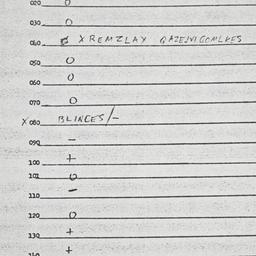 020 0
030 0
040 X REMZLAY GAZEJVI GOMLKES
050 0
060 0
070 0
X 080 BLINGES/-
090 -
100 +
101 0
110 -
120 0
130 +
140 +